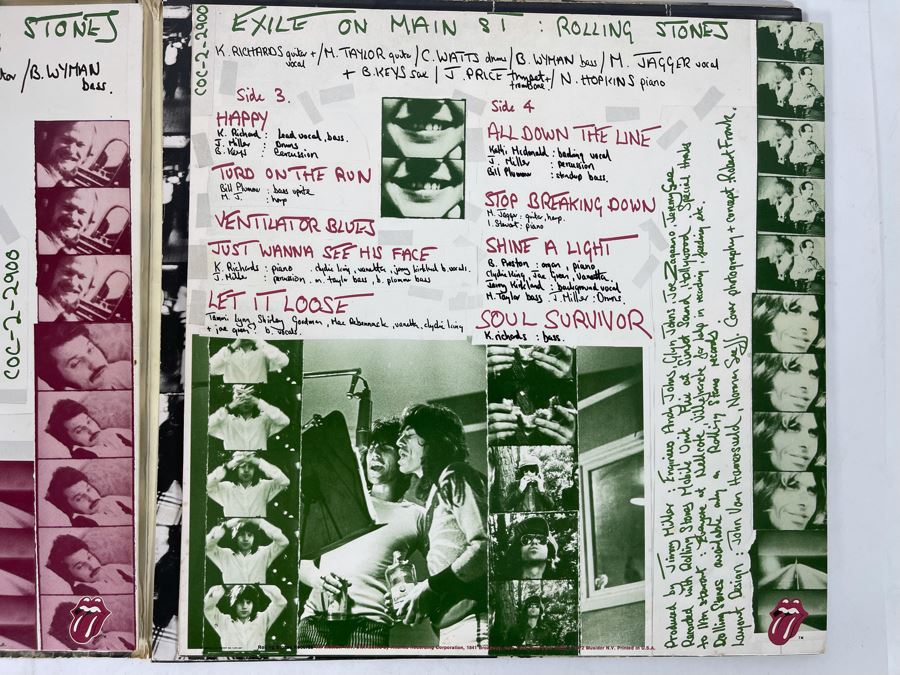 STONES
/B. WYMAN
bass.
COC-2-2900
COC-2-2900
EXILE ON MAIN ST : ROLLING STONES
K. RICHARDS guitar + /M. TAYLOR guitar /C. WATTS drums /B. WYMAN bass /M. JAGGER vocal
vocal
+ B. KEYS sax / J. PRICE trumpet + / N. HOPKINS piano
trombone
Side 3.
HAPPY
K. Richard : lead vocal, bass.
J. Miller : Drums.
B. Keys : Percussion
TURD ON THE RUN
Bill Plummer : bass uprite
M. J. : harp
VENTILATOR BLUES
JUST WANNA SEE HIS FACE
K. Richards : piano clydie king, vanetta, jerry kirkland b. vocals.
J. Miller : percussion. m. taylor bass, b. plummer bass
LET IT LOOSE
Tammi Lynn, Shirley Goodman, Mac Rebennack, vanetta, clydie king
+ joe green : b. vocals.
Side 4
ALL DOWN THE LINE
Kathi Mcdonald : backing vocal
J. Miller : percussion
Bill Plummer : standup bass.
STOP BREAKING DOWN
M. Jagger : guitar, harp.
I. Stewart : piano
SHINE A LIGHT
B. Preston : organ, piano
Clydie King, Joe Green, Vanetta
Jerry Kirkland : background vocal
M. Taylor bass J. Miller : Drums.
SOUL SURVIVOR
K. richards : bass.
Produced by Jimmy Miller : Engineers Andy Johns, Glyn Johns, Joe Zagarino, Jeremy Gee
Recorded with Rolling Stones Mobile Unit Plus at Sunset Sound, Hollywood. Special thanks
to Ian stewart : everyone at Nellcote, Villefranche for help in recording feeding etc.
Rolling Stones available only on Rolling Stones records
Layout Design : John Van Hamersveld, Norman Seeff Cover photography + concept Robert Frank.
Recording Corporation, 1841 Broadway
Printed in U.S.A.